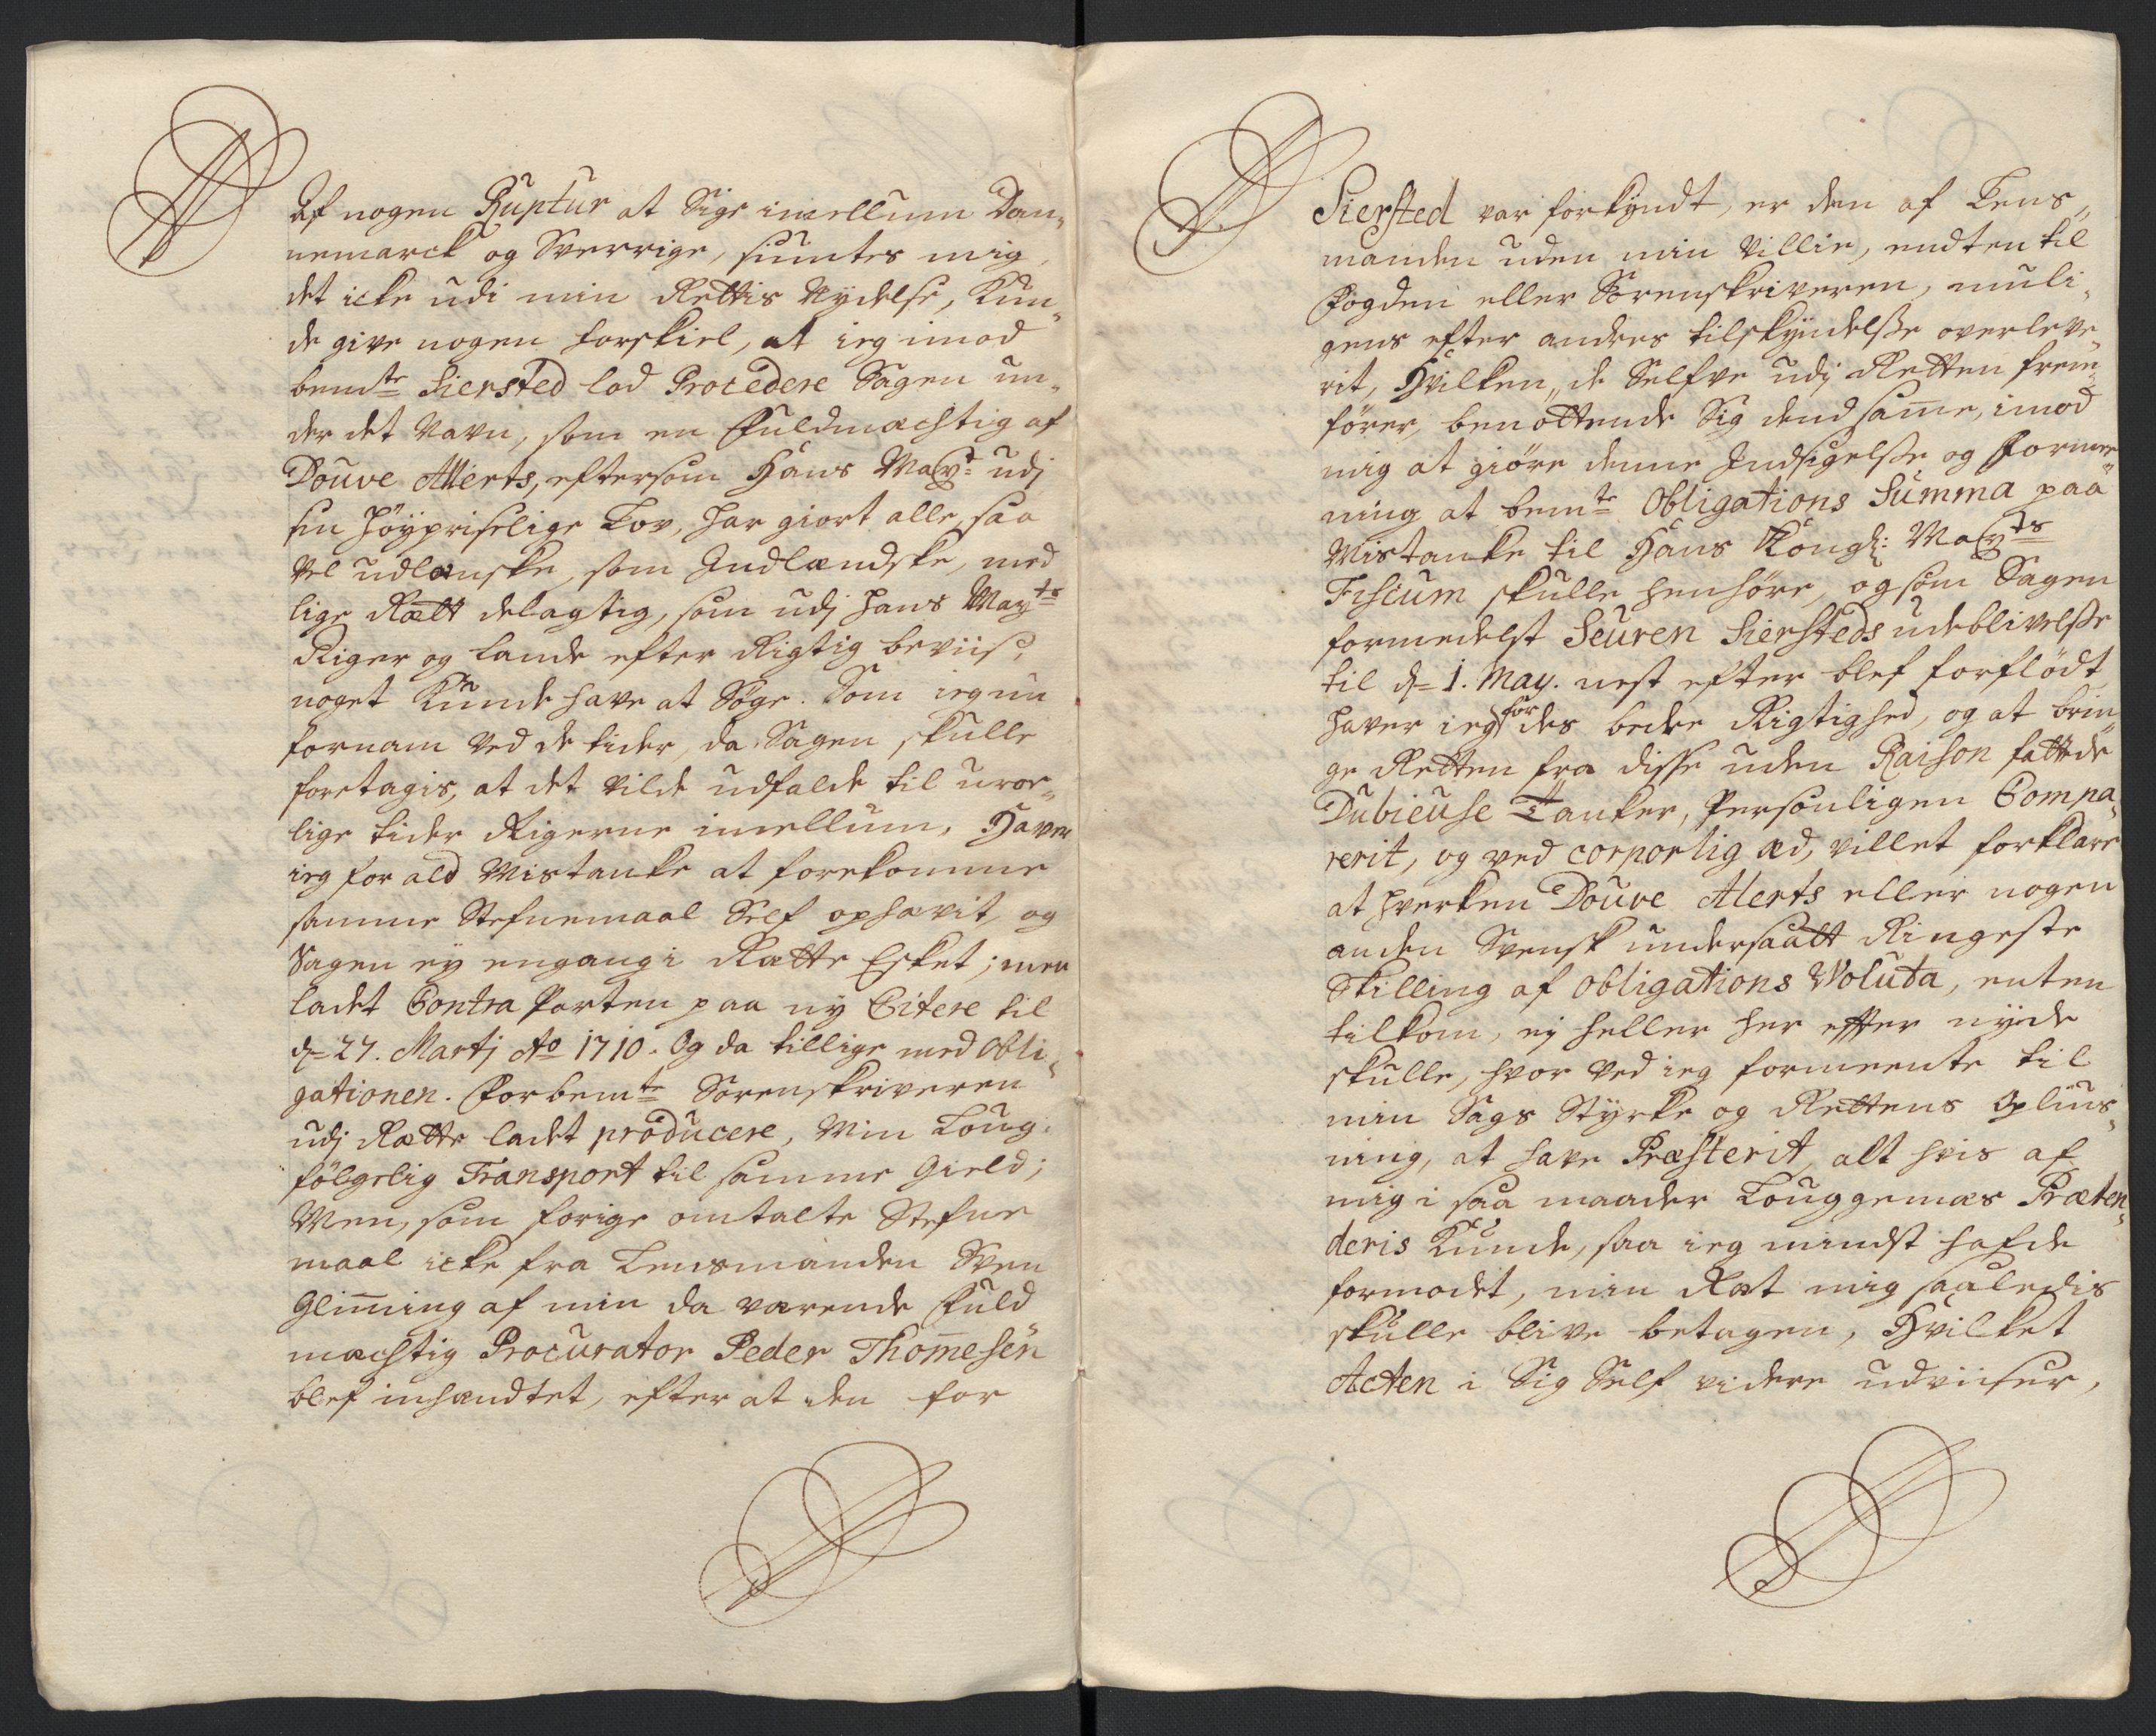 Af nogen Ruptur at Sige imellum Dan¬
nemarck og Sverrige, siuntes mig
det icke udi min Rettis Nydelse, Kun¬
de give nogen forskiel, at ieg imod
bemte Siersted lod Procedere Sagen un¬
der det Navn, som en Fuldmæchtig af
Douve Allerts, eftersom Hans Mayt udj
sin Höypriselige Lov, har giort alle, saa
vel udlænske, som Indlændske, med
lige Rætt delagtig, som udj hans Mayts
Riger og Lande efter Rigtig beviis,
noget Kunde have at Søge. Som ieg nu
fornam ved de tider, da Sagen skulle
foretagis, at det vilde udfalde til uroe¬
lige tider Rigerne imellum, Haver
ieg for ald Mistanke at forekomme
samme Stefnemaal Self ophævit, og
Sagen ey engang i Rætte Esket; men
ladet Contra Parten paa ny Citere til
d= 27. Martj Ao 1710. Og da tillige med Obli¬
gationen. Forbemte Sorenskriveren
udj Rætte ladet producere, Min Loug¬
fölgelig Transport til samme Gield;
Men, som forige omtalte Stefne
maal icke fra Lensmanden Sven
Glim̅ing af min da værende Fuld
mæchtig Procurator Peder Thom̅esen
blef inhændtet, efter at den for
Siersted var forkyndt, er den af Lens¬
manden uden min Villie, endten til
Fogden eller Sorenskriveren, muli¬
gens efter andres tilskyndelsse overleve¬
rit, Hvilken, de Selfve udj Retten frem¬
förer, benöttende Sig dend sam̅e, imod
mig at giöre denne Indsigelsse og Forme¬
ning at bemte Obligations Summa paa
Mistanke til Hans Kongl: Mayts
Fiscum skulle henhöre, og som Sagen
formedelst Seuren Siersteds udeblivelsse
til d= 1. May. nest efter blef forflödt,
haver ieg for des bedre Rigtighed, og at brin¬
ge Retten fra disse uden Raison fattede
Dubieuse Tanker, Personligen Compa¬
rerit, og ved corporlig æd, villet forklare
at hverken Douve Alerts eller nogen
anden Svensk undersaatt Ringeste
Skilling af Obligations Voluta, enten
tilkom, ej heller her effter nyde
skulle, hvor ved ieg formeente til
min Sags Styrke og Rettens Oplius¬
ning, at have Præsterit, alt hvis af
mig i saa maader Louggemæs Præten¬
deris Kunde, saa ieg mindst hafde
formodet, min Ræt mig saaledis
skulle blive betagen, Hvilket
Acten i Sig Self videre udviiser,